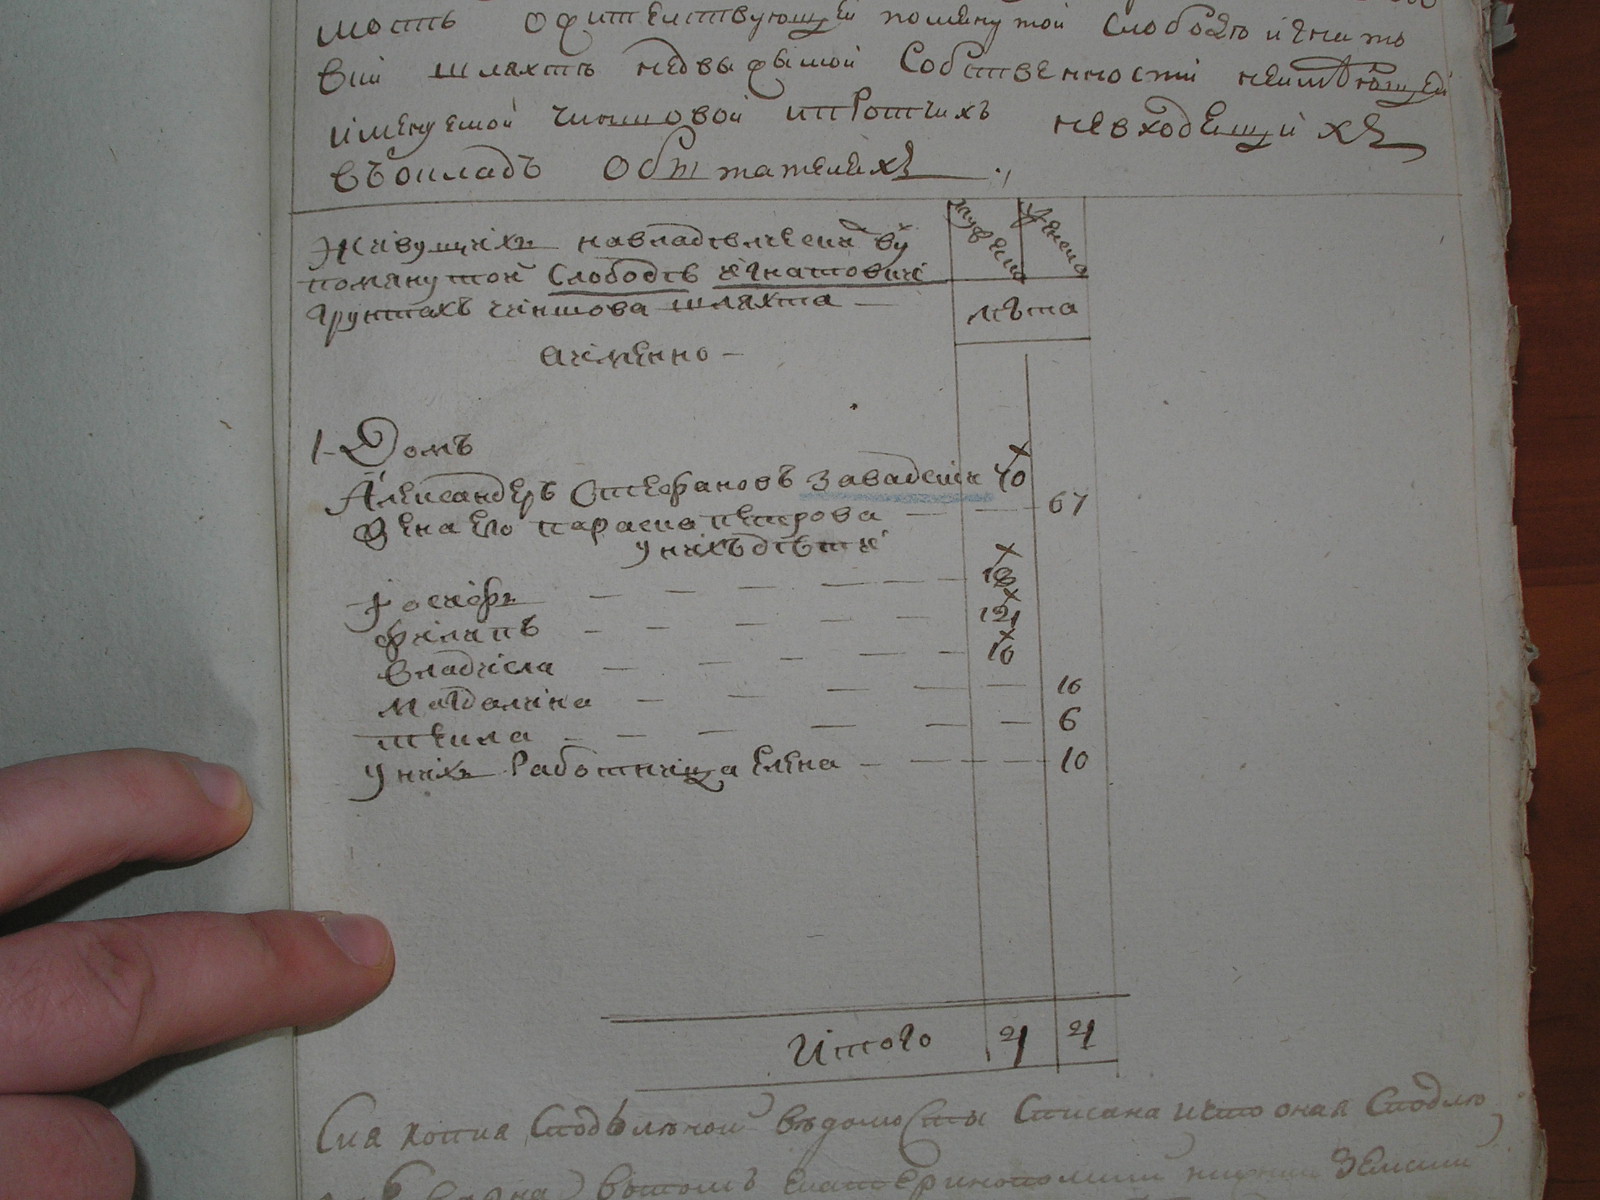 мость о житемствующей помянутой слободы игнато
вки шляхты недвыжымой собственности неимѣющей
именуемой чиншовой и протчихъ невходящихъ
въ окладъ обитателяхъ
Живущихъ на владелческихъ въ
помянутой слободѣ игнатовки
грунтахъ чиншова шляхта
аименно
мужеска
женска
лѣта
1 Домъ
Александеръ Стефановъ Завадски 40
Жена его параска петрова 67
у нихъ дѣти
Иосифъ 18
филипъ 12
владисла 10
магдалина 16
текла 6
у нихъ работница елена 10
Итого 4 4
Сиа копиа с подѣлиной вѣдомосты списана и что онаа с подлѣ
вѣрна в томъ екатеринополский нижний земский